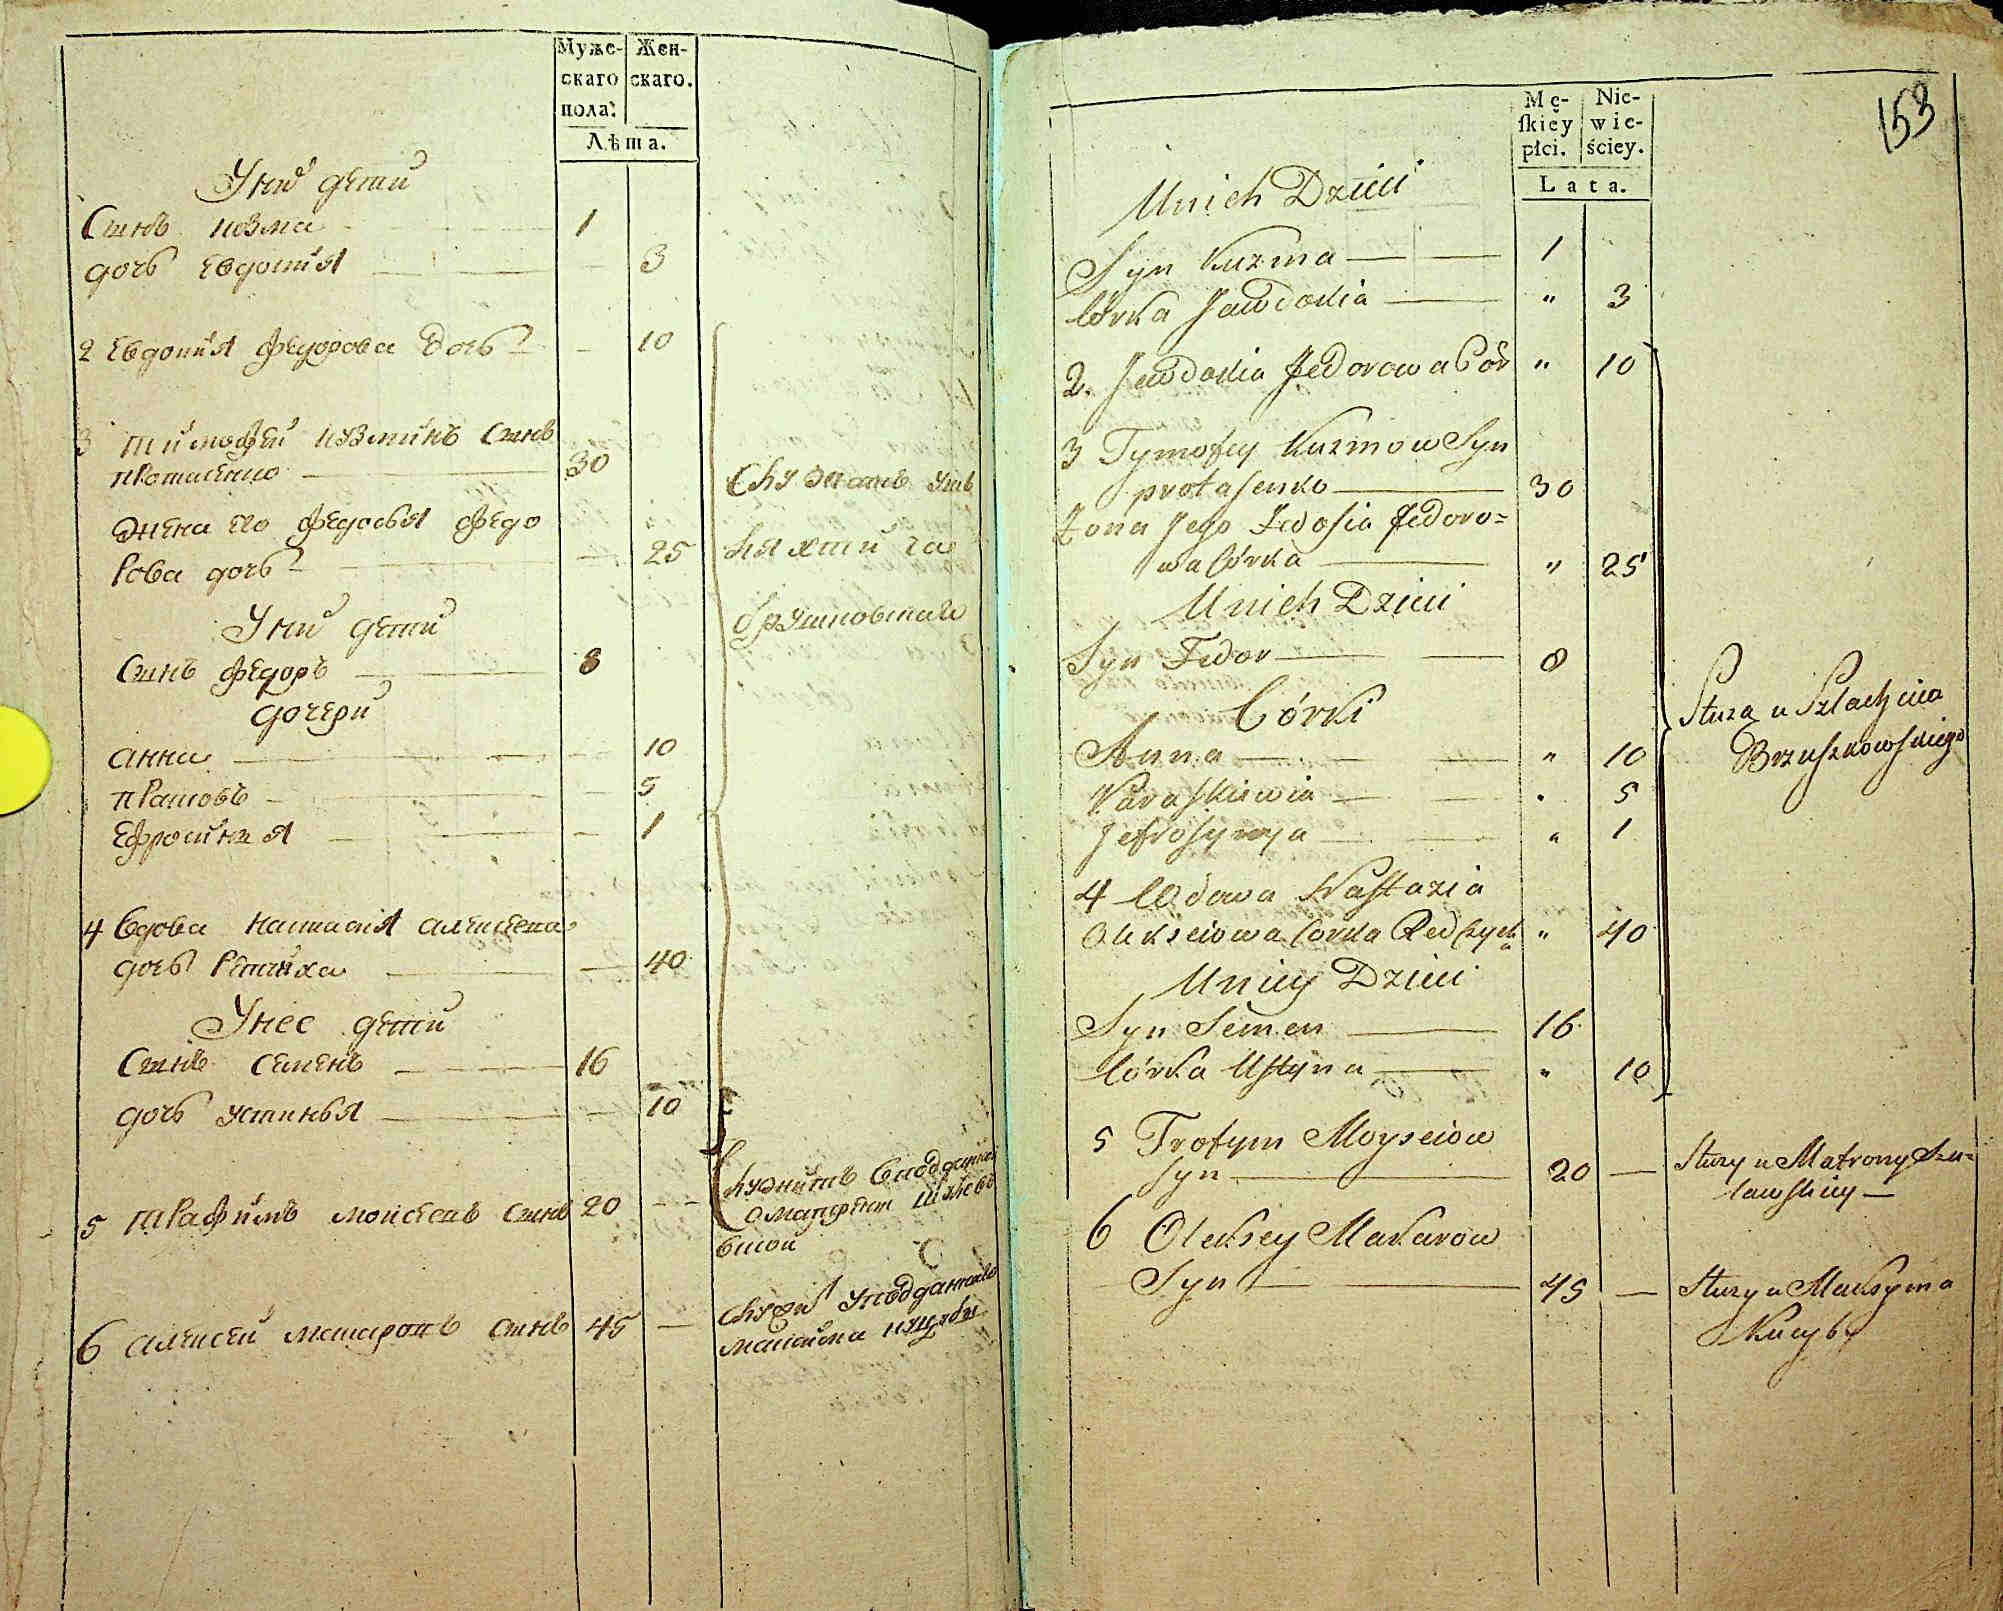 Муже-
скаго
пола.
Жен-
скаго.
Лѣта.
У них дети
Сынъ козма 1
дочь Евдокия 3
2 Евдокия федорова дочь 10
3 тимофей кузминъ Сынъ
протасенко 30
Жена его федосья федо
рова дочь 25
У них дети
Сынъ федоръ 8
дочери
анна 10
прасковья 5
Ефросиния 1
4 вдова настасия алексеева
дочь 40
У нее дети
Сынъ семенъ 16
дочь устинья 10
5 трафимъ моисеевъ Сынъ 20
6 алексей макаровъ Сынъ 45
Служатъ
шляхтича
служитъ
служи у подданнаго
максима
153
Mę-
ſkiey
płci.
Nie-
wie-
ściey.
Lata.
Unich Dzieci
Syn Kuzma 1
Córka Jawdokia " 3
2. Jawdokia Fedorowa Cór " 10
3 Tymofey Kuzmow Syn
protasenko 30
Żona Jego Fedosia Fedoro=
wa Córka " 25
Unich Dzieci
Syn Fedor 8
Córki
Anna " 10
Paraskiewia " 5
Jefrosynya " 1
4 Wdowa Nastazia
Olekseiowa Corka " 40
Uniey Dzieci
Syn Semen 16
Córka Ustyna " 10
Służą u Szlachcica
Brzuszkowskiego
5 Trofym Moyseiow
Syn 20 — Służy u Matrony
6 Oleksey Makarow
Syn 45 — Służy u Maksyma
Kucyby